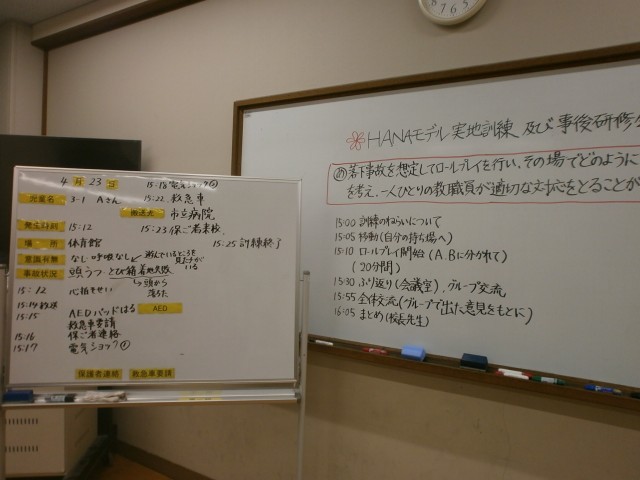 4 月 23 日
児童名 3-1 Aさん
搬送先 市立病院
発生時刻 15:12
場 所 体育館
意識有無 なし 呼吸なし
遊んでいるところを
見た子が
いる
事故状況 頭うつ とび箱 着地失敗
↳頭から
落ちた
15:12 心拍もせい
15:14 放送
15:15 AEDパッドはる AED
救急車要請
15:16 保ご者連絡
15:17 電気ショック①
15:18 電気ショック②
15:22 救急車
15:23 保ご者来校
15:25 訓練終了
保護者連絡 救急車要請
HANAモデル 実地訓練 及び 事後研修
落下事故を想定してロールプレイを行い、その場でどのように
を考え、一人ひとりの教職員が適切な対応をとることが
15:00 訓練のねらいについて
15:05 移動(自分の持ち場へ)
15:10 ロールプレイ開始 (A.Bに分かれて)
(20分間)
15:30 ふり返り(会議室)、グループ交流
15:55 全体交流(グループで出た意見をもとに)
16:05 まとめ(校長先生)